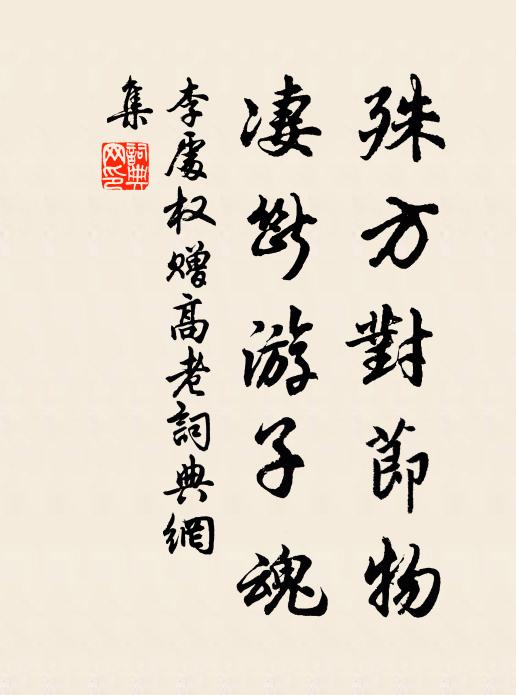 殊方對節物
凄斷游子魂
李處权赠高老詞典網
集
詞典網印